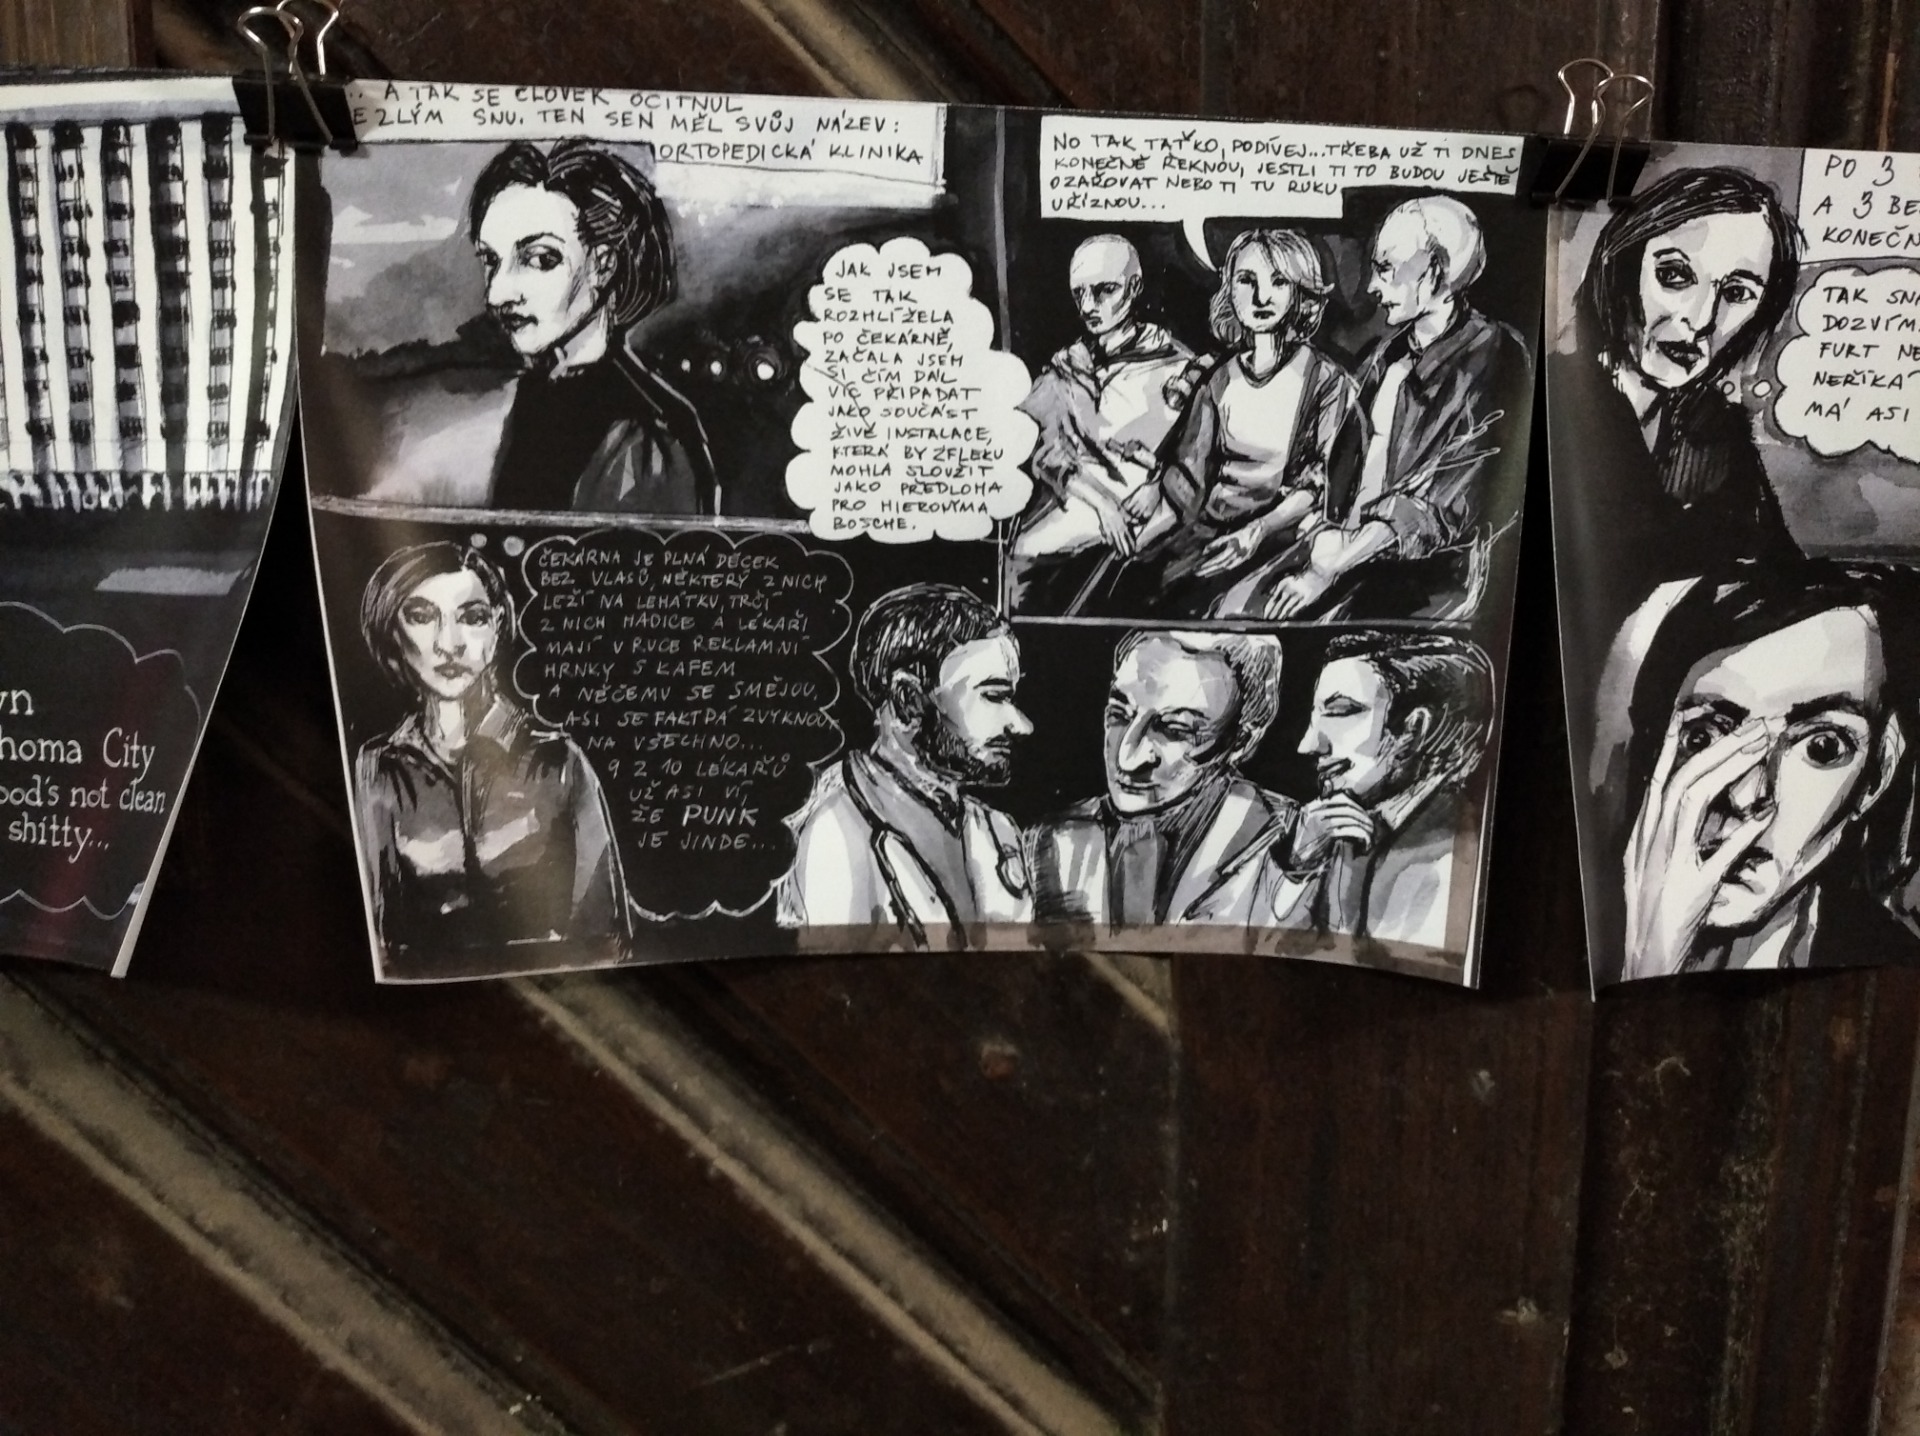 yn
homa City
ood's not clean
shitty...
.. A TAK SE ČLOVĚK OCITNUL
E ZLÝM SNU. TEN SEN MĚL SVŮJ NÁZEV:
ORTOPEDICKÁ KLINIKA
JAK JSEM
SE TAK
ROZHLÍŽELA
PO ČEKÁRNĚ,
ZAČALA JSEM
SI ČÍM DÁL
VÍC PŘIPADAT
JAKO SOUČÁST
ŽIVÉ INSTALACE,
KTERÁ BY ZFLEKU
MOHLA SLOUŽIT
JAKO PŘEDLOHA
PRO HIERONYMA
BOSCHE.
NO TAK TAŤKO, PODÍVEJ...TŘEBA UŽ TI DNES
KONEČNĚ ŘEKNOU, JESTLI TI TO BUDOU JEŠTĚ
OZAŘOVAT NEBO TI TU RUKU
UŘÍZNOU...
ČEKÁRNA JE PLNÁ DĚCEK
BEZ VLASŮ, NĚKTERÝ Z NICH
LEŽÍ NA LEHÁTKU, TRČÍ
Z NICH HADICE A LÉKAŘI
MAJÍ V RUCE REKLAMNÍ
HRNKY S KAFEM
A NĚČEMU SE SMĚJOU,
ASI SE FAKT DÁ ZVYKNOU
NA VŠECHNO...
9 Z 10 LÉKAŘŮ
UŽ ASI VÍ,
ŽE PUNK
JE JINDE...
PO 3
A 3 BE
KONEČN
TAK SN
DOZVÍM
FURT NE
NEŘÍKÁ
MÁ ASI